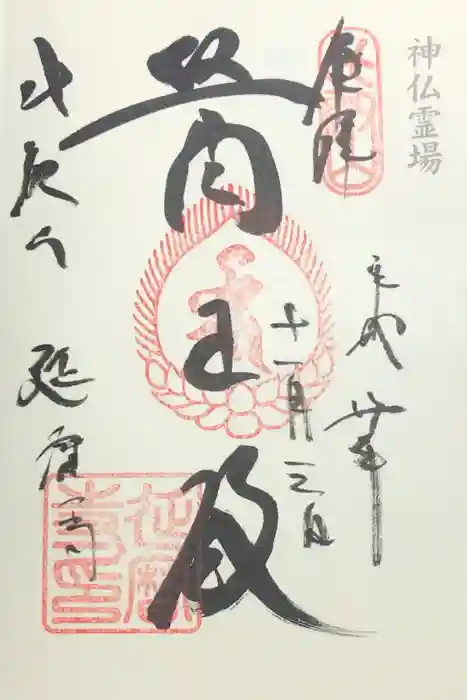 神仏霊場
奉拝
平成廿年
十一月三日
醫王殿
比叡山 延暦寺